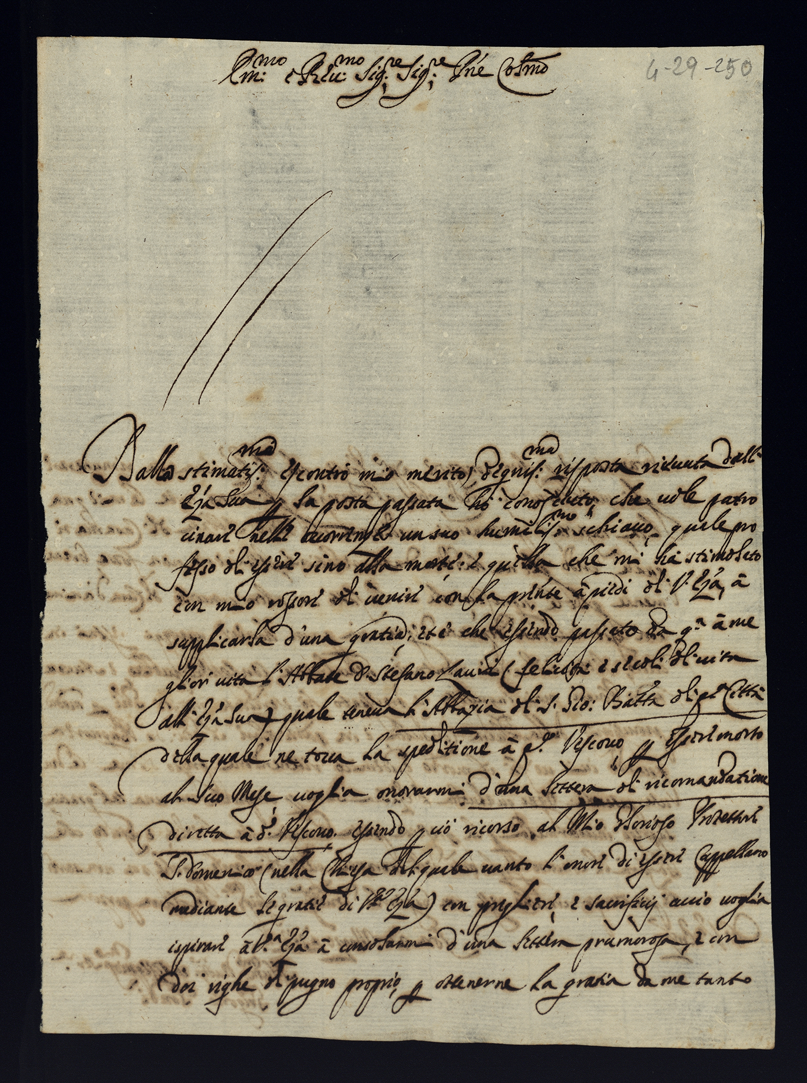 Emo: e Rmo: Sig:re Sig:re Pne Colmo
4-29-250
Dalla stimatis:ma e contro mio merito, degnis:ma risposta riceuuta dall'
Eza Sua p la posta passata hò conosciuto, che uole patro
cinare nelle occorrenze un suo humilis:mo schiauo, quale pro
fesso di essere sino alla morte: e quella che mi hà stimolato
con mio rossore di uenire con la pnte à piedi di V Eza, à
supplicarla d'una gratia; et è che essendo passato da qa à me
glior uita l'Abbate D. Stefano Lauri (felicità e secoli di uita
all'Eza Sua) quale teneua l'Abbazia di S. Gio: Batta di qa Città
della quale ne tocca la speditione à qo Vescouo p esser morto
al suo Mese uoglia onorarmi d'una lettera di ricomandatione
diretta à do Vescouo. essendo più ricorso al Mio Glorioso Protettore
S. Domenico (nella Chiesa del quale uanto l'onore di essere Cappellano
mediante le gratie di Va Eza) con preghiere, e sacrificij acciò uoglia
ispirare à Va Eza à consolarmi d'una lettera premorosa, e con
doi righe di pugno proprio, p ottenerne la gratia da me tanto